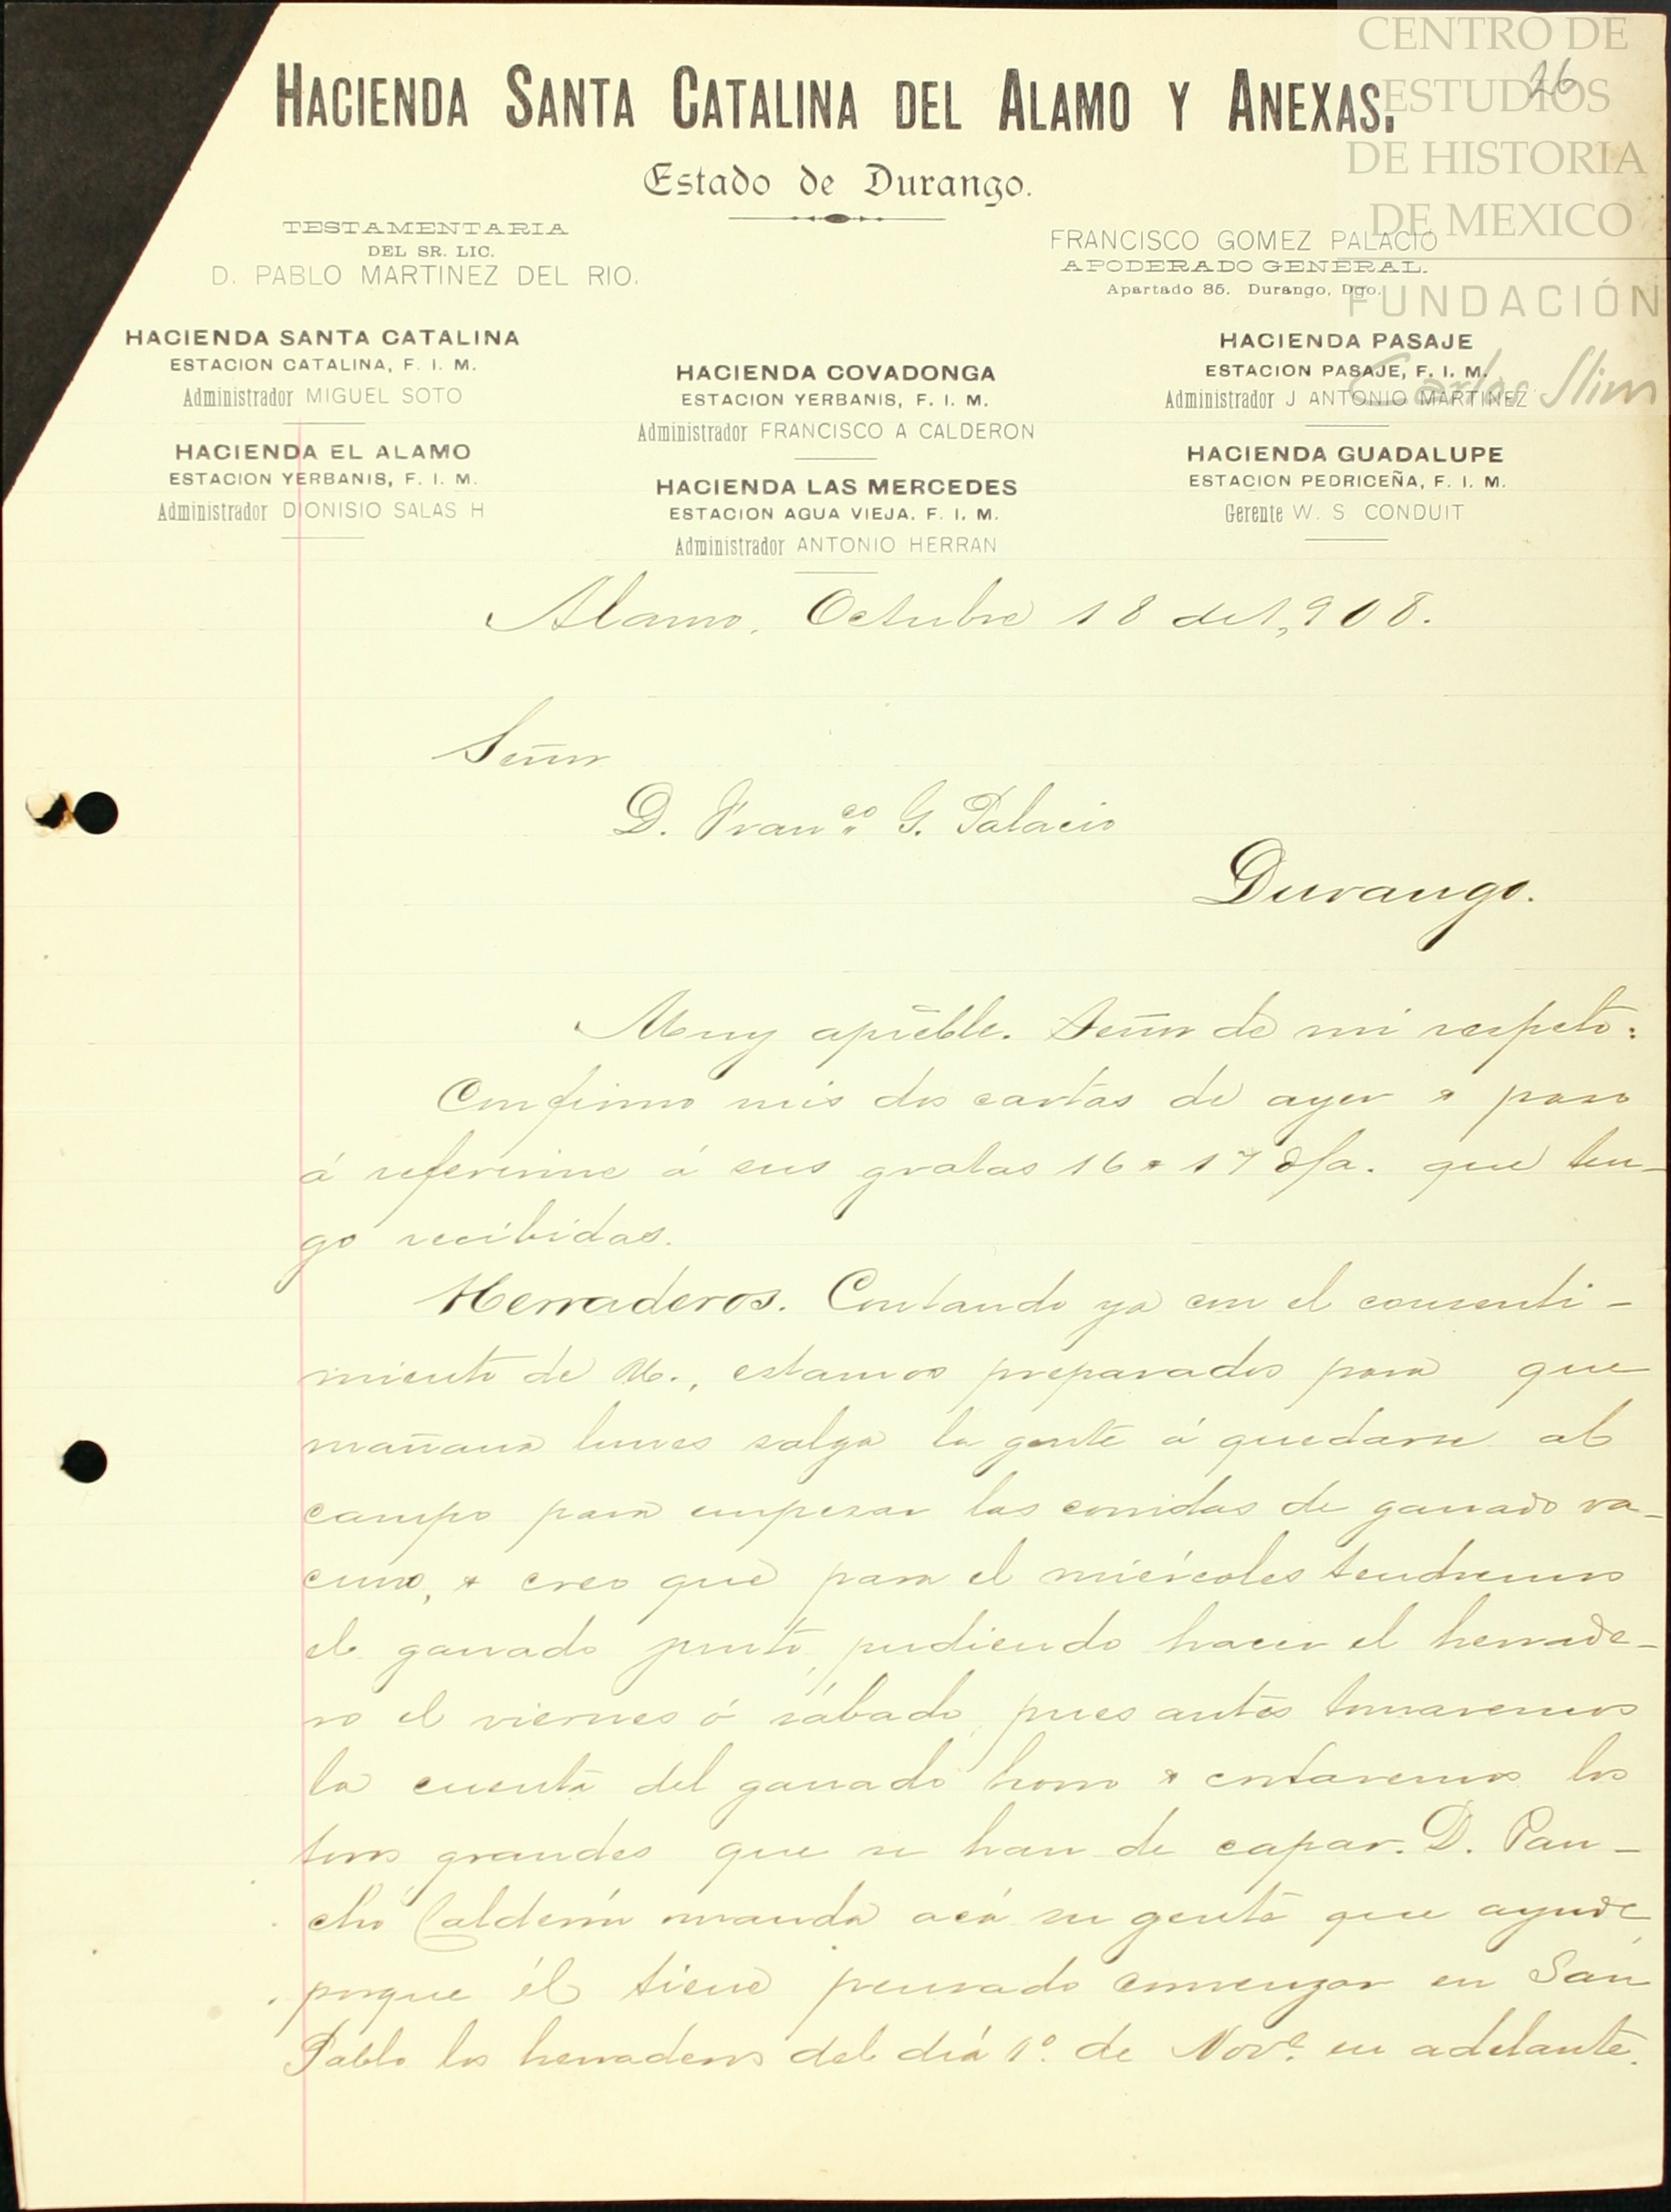 CENTRO DE
ESTUDIOS
DE HISTORIA
DE MEXICO
FUNDACIÓN
Carlos Slim
26
HACIENDA SANTA CATALINA DEL ALAMO Y ANEXAS.
Estado de Durango.
TESTAMENTARIA
DEL SR. LIC.
D. PABLO MARTINEZ DEL RIO.
FRANCISCO GOMEZ PALACIO
APODERADO GENERAL.
Apartado 85. Durango, Dgo.
HACIENDA SANTA CATALINA
ESTACION CATALINA, F. I. M.
Administrador MIGUEL SOTO
HACIENDA EL ALAMO
ESTACION YERBANIS, F. I. M.
Administrador DIONISIO SALAS H
HACIENDA COVADONGA
ESTACION YERBANIS, F. I. M.
Administrador FRANCISCO A CALDERON
HACIENDA LAS MERCEDES
ESTACION AGUA VIEJA. F. I. M.
Administrador ANTONIO HERRAN
HACIENDA PASAJE
ESTACION PASAJE, F. I. M.
Administrador J ANTONIO MARTINEZ
HACIENDA GUADALUPE
ESTACION PEDRICEÑA, F. I. M.
Gerente W. S CONDUIT
Alamo, Octubre 18 de 1,908.
Señor
D. Franco G. Palacio
Durango.
Muy apreble. Señor de mi respeto:
Confirmo mis dos cartas de ayer & paso
á referirme á sus gratas 16 & 17 d/a. que ten-
go recibidas.
Herraderos. Contando ya con el consenti-
miento de U., estamos preparados para que
mañana lunes salga la gente á quedarse al
campo para empezar las corridas de ganado va-
cuno, & creo que para el miércoles tendremos
el ganado junto, pudiendo hacer el herrade-
ro el viernes ó sábado, pues antes tomaremos
la cuenta del ganado horro & cortaremos los
toros grandes que se han de capar. D. Pan-
cho Calderón manda acá su gente que ayude,
porque él tiene pensado comenzar en San
Pablo los herraderos del día 1º. de Nove. en adelante.